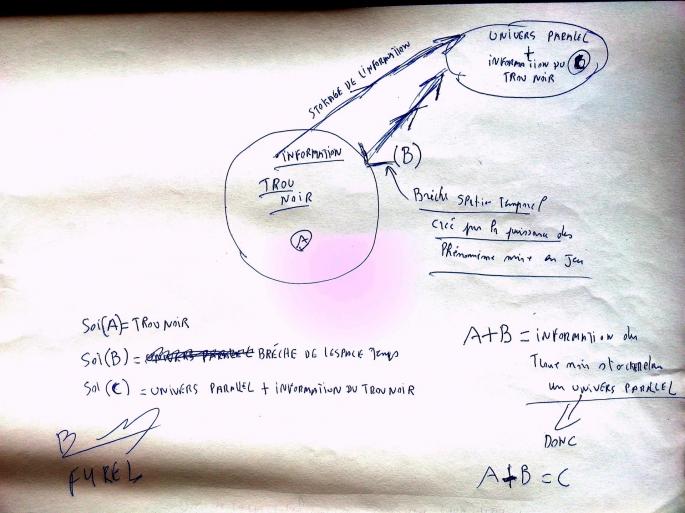 UNIVERS PARALLEL
+
INFORMATION DU C
TROU NOIR
STOKAGE DE L'INFORMATION
INFORMATION
TROU
NOIR
A
(B)
Brèche Spatio Temporel
créé par la puissance des
Phénomème mise en jeu
Soi(A) = TROU NOIR
Soi(B) = BRÉCHE DE L'ESPACE Temps
Soi (C) = UNIVERS PARALLEL + INFORMATION DU TROU NOIR
A+B = INFORMATION du
un UNIVERS PARALLEL
DONC
A+B = C
FUREL